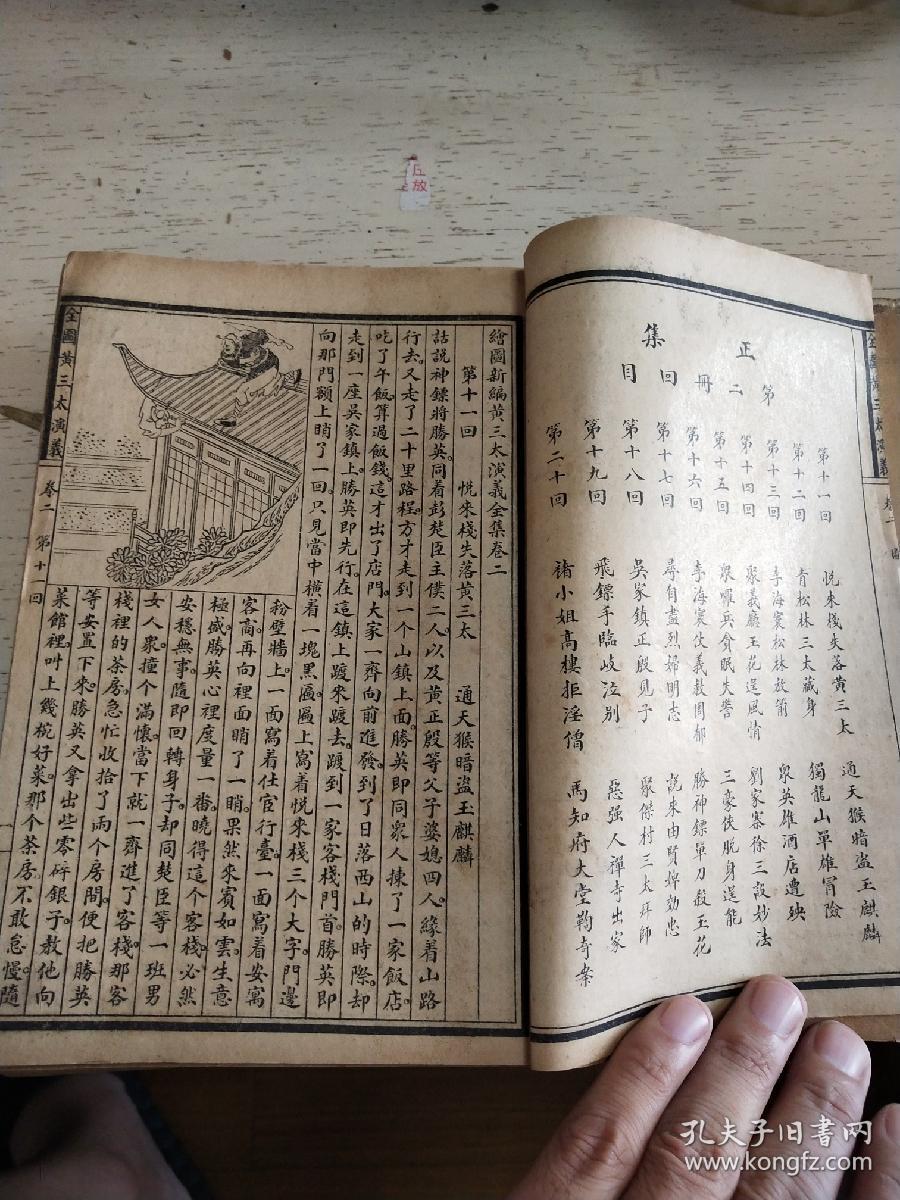 第二冊
正集
回目
第十一回 悦來棧失落黄三太 通天猴暗盜玉麒麟
第十二回 青松林三太藏身 獨龍山單雄冒險
第十三回 李海寰松林放箭 衆英雄酒店遭殃
第十四回 聚義廳王花逞風情 劉家寨徐三設妙法
第十五回 衆嘍兵貪眠失警 三豪俠脱身逞能
第十六回 李海寰仗義救閨郁 勝神鏢單刀殺王花
第十七回 尋自盡烈婦明志 説來由賢婢効忠
第十八回 吳家鎮正殷見子 聚傑村三太拜師
第十九回 飛鏢手臨岐泣别 惡强人禪寺出家
第二十回 禇小姐高樓拒淫僧 馬知府大堂鞫奇案
繪圖新編黄三太演義全集卷二
第十一回 悦來棧失落黄三太 通天猴暗盜玉麒麟
話説神鏢將勝英同着彭楚臣主僕二人以及黄正殷等父子婆媳四人緣着山路
行去又走了二十里路程方才走到一个山鎮上面勝英即同衆人揀了一家飯店
吃了午飯算過飯錢這才出了店門大家一齊向前進發到了日落西山的時際却
走到一座吳家鎮上勝英即先行在這鎮上踱來踱去踱到一家客棧門首勝英即
向那門額上睄了一回只見當中横着一塊黑匾匾上寫着悦來棧三个大字門邊
粉壁牆上一面寫着仕宦行臺一面寫着安寓
客商再向裡面睄了一睄果然來賓如雲生意
極盛勝英心裡度量一番曉得這个客棧必然
安穩無事隨即回轉身子却同楚臣等一班男
女人衆撞个滿懷當下就一齊進了客棧那客
棧裡的茶房急忙收拾了兩个房間便把勝英
等安置下來勝英又拿出些零碎銀子教他向
菜館裡叫上幾椀好菜那个茶房不敢怠慢隨
全圖黄三太演義 卷二 第十一回
孔夫子旧书网
www.kongfz.com